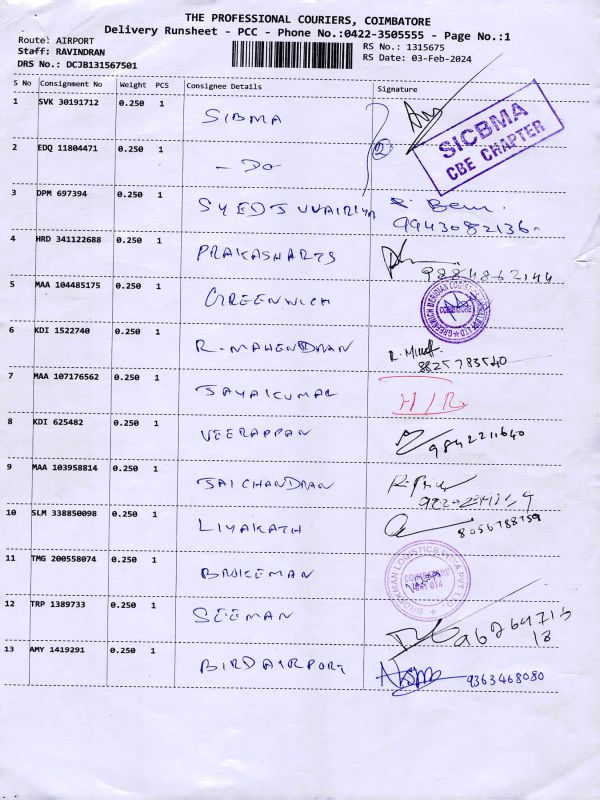 THE PROFESSIONAL COURIERS, COIMBATORE
Delivery Runsheet - PCC - Phone No.:0422-3505555 - Page No.:1
Route: AIRPORT
Staff: RAVINDRAN
DRS No.: DCJB131567501
RS No.: 1315675
RS Date: 03-Feb-2024
S No Consignment No Weight PCS Consignee Details Signature
1 SVK 30191712 0.250 1 SIBMA
SICBMA
CBE CHAPTER
2 EDQ 11804471 0.250 1 - Do
3 DPM 697394 0.250 1 SYEDJUVAIRIYA
9943082136-
4 HRD 341122688 0.250 1 PRAKASHARTS
9884862144
5 MAA 104485175 0.250 1 GREENWICH
COIMBATORE
6 KDI 1522740 0.250 1 R-MAHENDRAN
8825783540
7 MAA 107176562 0.250 1 JAYAKUMAR
H/R
8 KDI 625482 0.250 1 VEERAPPAN
9842211640
9 MAA 103958814 0.250 1 JAICHANDRAN
10 SLM 338850098 0.250 1 LIYAKATH
8056788759
11 TMG 200558074 0.250 1 BROKEMAN
12 TRP 1389733 0.250 1 SEEMAN
96264715
13
13 AMY 1419291 0.250 1 BIRDAIRPORT
9363468080